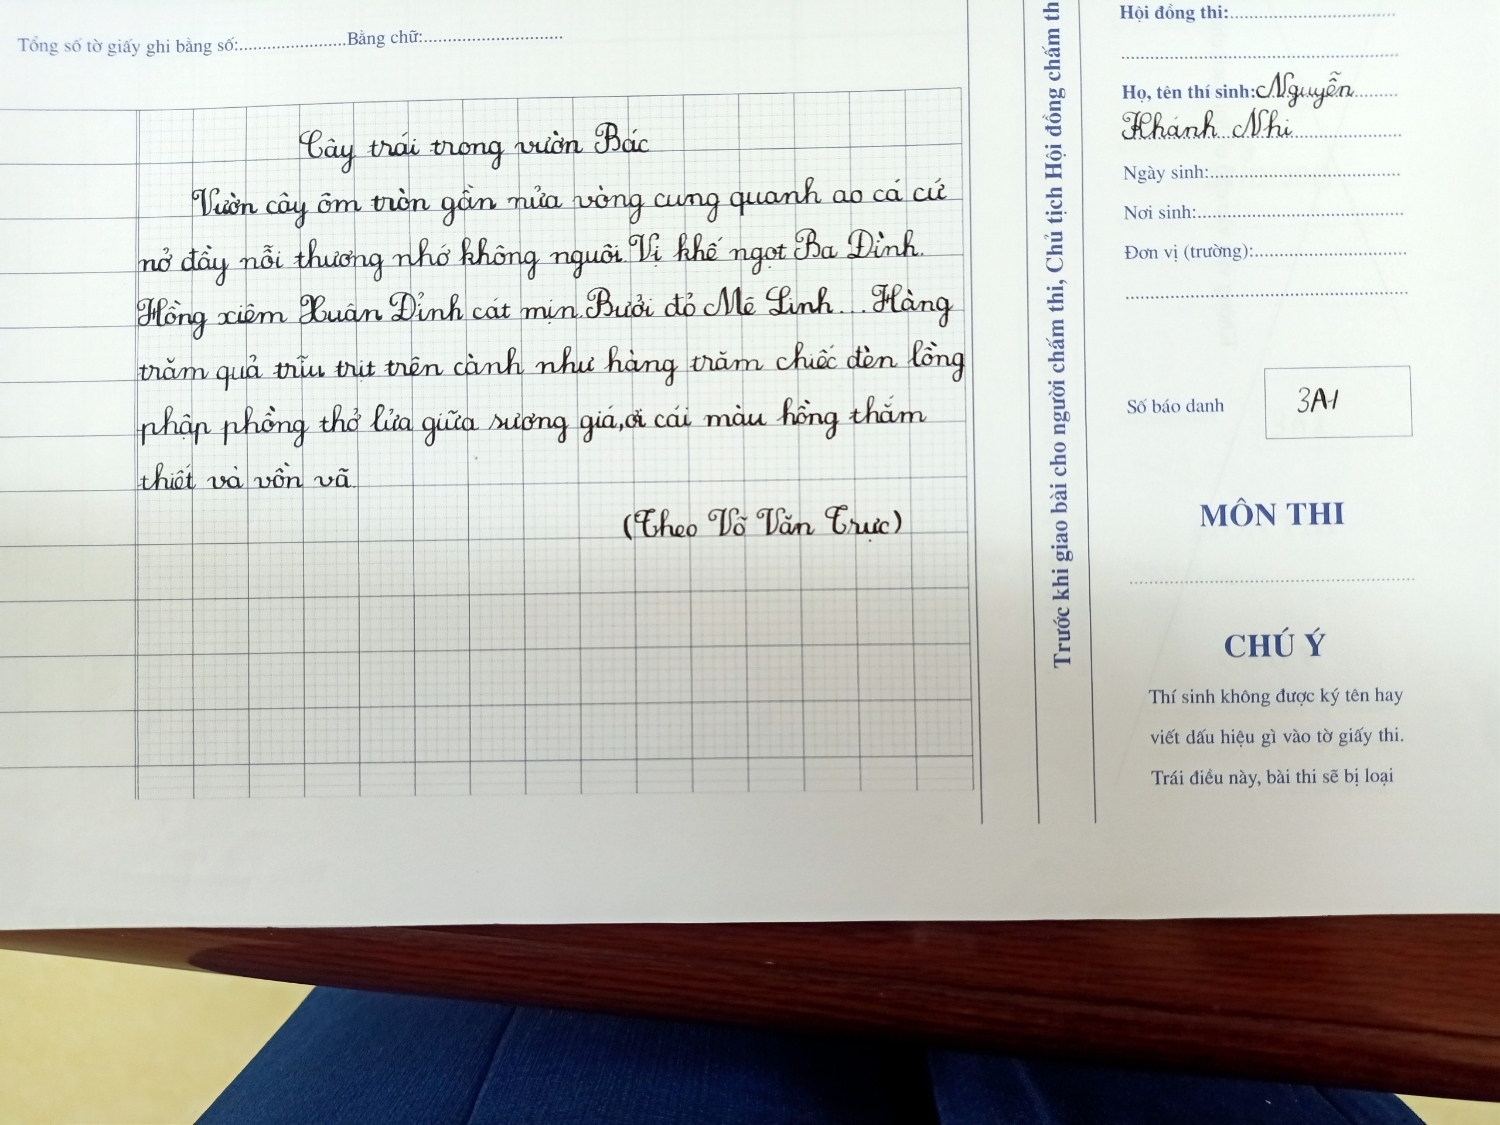 Tổng số tờ giấy ghi bằng số:......................Bằng chữ:.............................
Cây trái trong vườn Bác
Vườn cây ôm tròn gần nửa vòng cung quanh ao cá cứ
nở đầy nỗi thương nhớ không nguôi. Vị khế ngọt Ba Đình.
Hồng xiêm Xuân Đỉnh cát mịn. Bưởi đỏ Mê Linh... Hàng
trăm quả trĩu trịt trên cành như hàng trăm chiếc đèn lồng
phập phồng thở lửa giữa sương giá, ơi cái màu hồng thắm
thiết và vồn vã.
(Theo Võ Văn Trực)
Trước khi giao bài cho người chấm thi, Chủ tịch Hội đồng chấm th
Hội đồng thi:...................................
Họ, tên thí sinh: Nguyễn
Khánh Nhi
Ngày sinh:........................................
Nơi sinh:...........................................
Đơn vị (trường):................................
Số báo danh
3A1
MÔN THI
CHÚ Ý
Thí sinh không được ký tên hay
viết dấu hiệu gì vào tờ giấy thi.
Trái điều này, bài thi sẽ bị loại